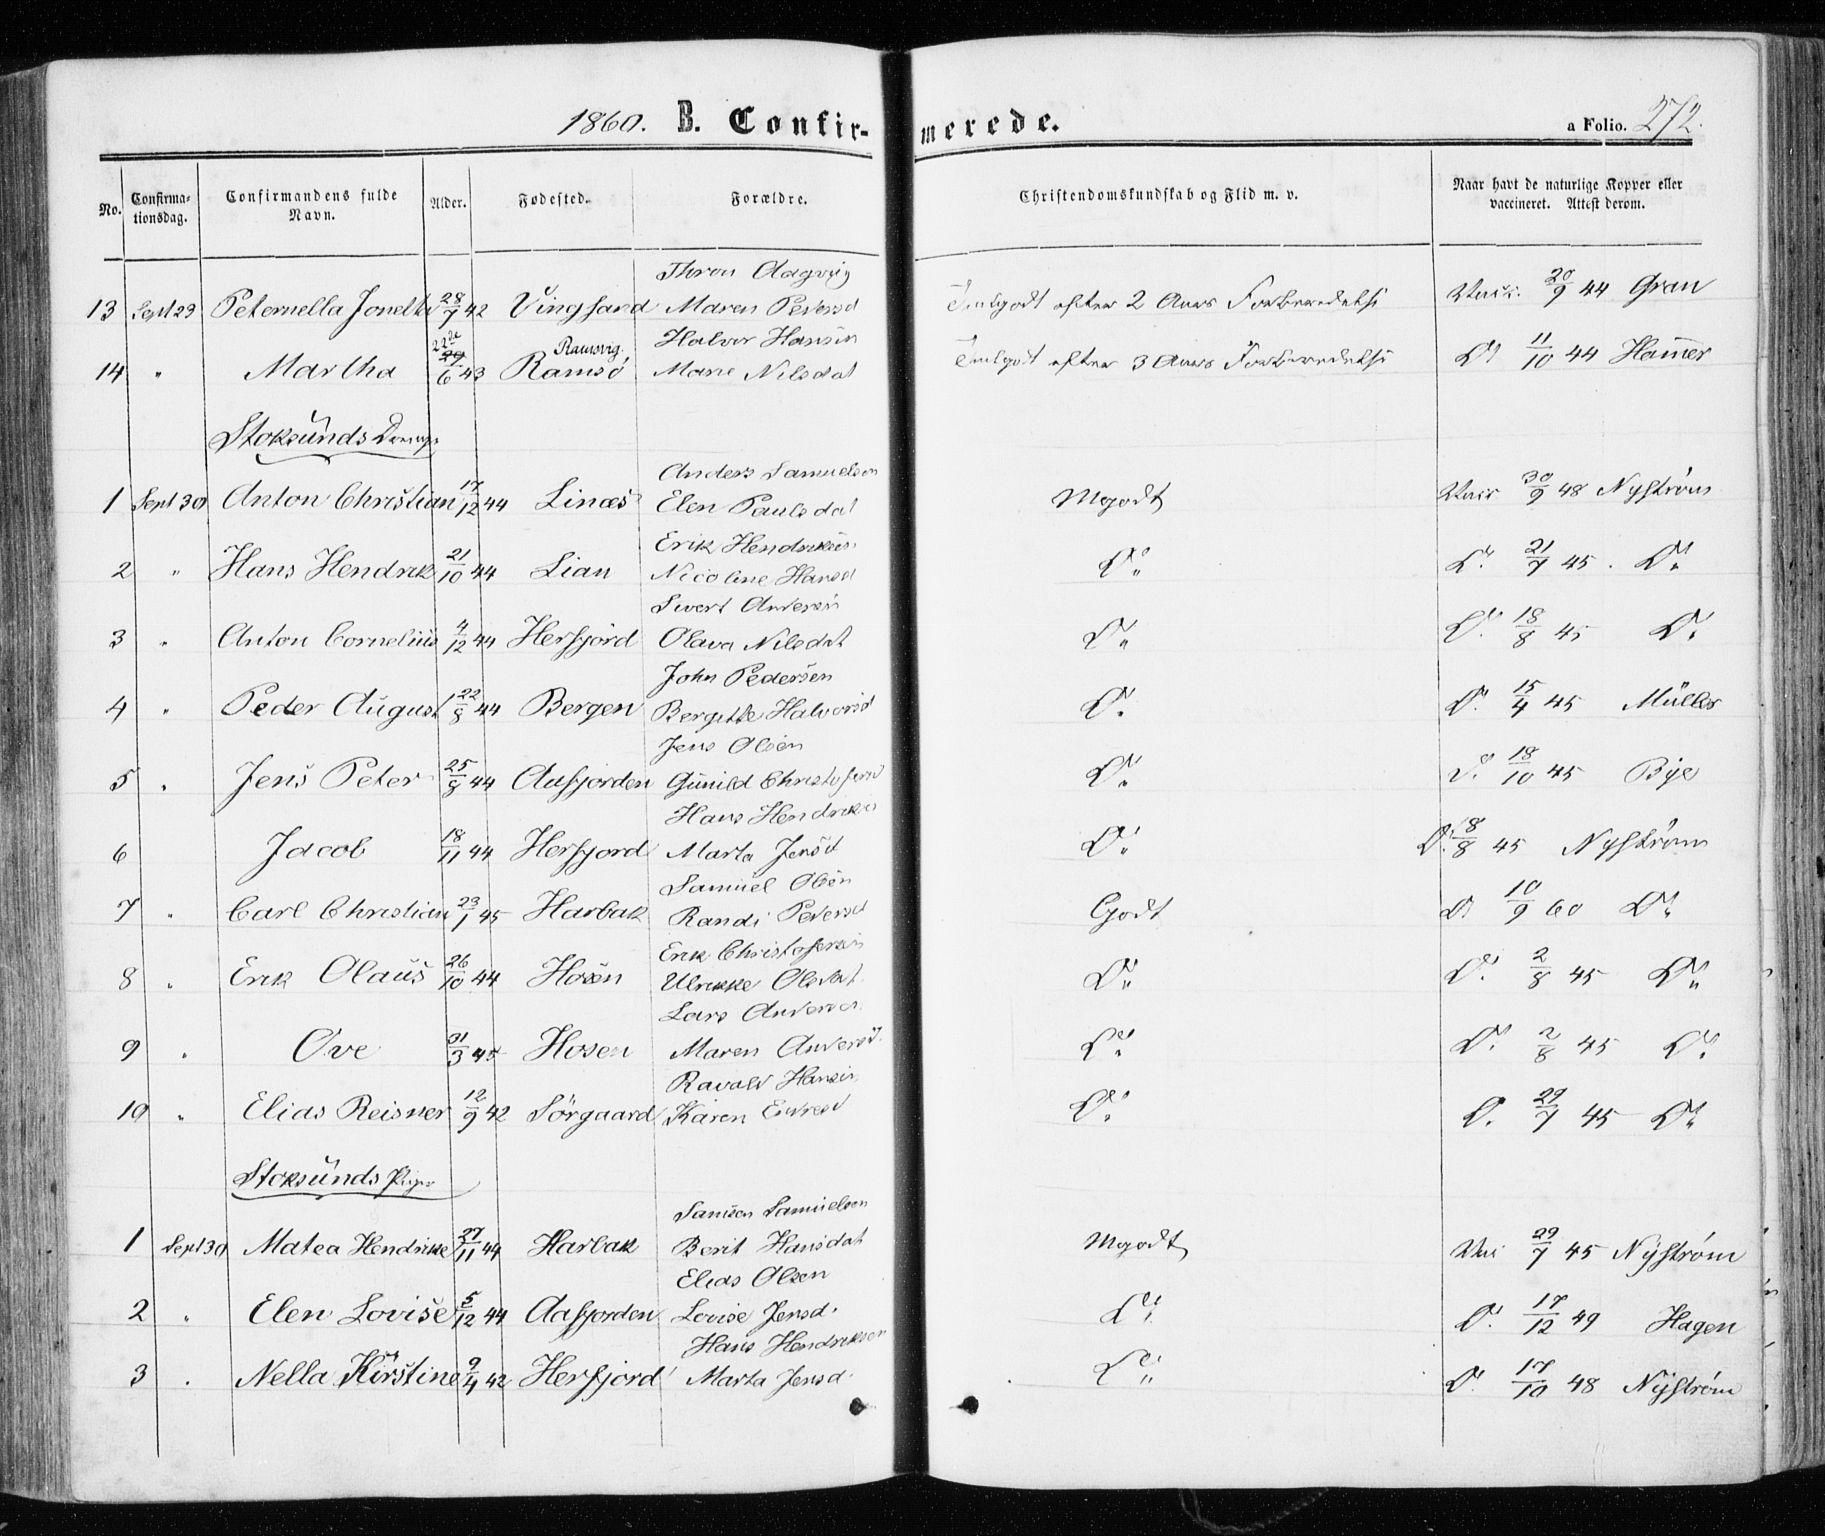 1860. B. Confir- merede. a Folio. 272.
No. Confirma-tionsdag. Confirmandens fulde Navn. Alder. Fødested. Forældre. Christendomskundskab og Flid m. v. Naar havt de naturlige Kopper eller vaccineret. Attest derom.
Thron Aagvig
13 Sept 29 Peternella Jonetta 28/7 42 Vingsand Maren Pedersd Temlgodt efter 2 Aars Forberedelse Vacc. 20/9 44 Gran
22de Ramsvig. Halvor Hansen
14 " Martha 29/6 43 Ramsö Marie Nilsdat Temlgodt efter 3 Aars Forberedelse Do 11/10 44 Hamer
Stoksunds Drenge
Anders Samuelsen
1 Sept 30 Anton Christian 17/12 44 Linæs Elen Paulsdat Mgodt Vacc 30/9 48 Nyström
Erik Hendriksen
2 " Hans Hendrik 21/10 44 Lian Nicoline Hansd Do Do 21/7 45. Do
Sivert Andersen
3 " Anton Cornelius 4/12 44 Herfjord Olava Nilsdat Do Do 18/8 45 Do
John Pedersen
4 " Peder August 22/8 44 Bergen Bergitte Halvorsd Do Do 15/4 45 Müller
Jens Olsen
5 " Jens Peter 25/8 44 Aafjorden Gunild Christofersd Do Do 18/10 45 Bye
Hans Hendriksen
6 Jacob 18/11 44 Herfjord Marta Jensd Do Do 18/8 45 Nyström
Samuel Olsen
7 " Carl Christian 23/1 45 Harbak Randi Pedersd Godt Do 10/9 60 Do
Erik Christofersen
8 " Erik Olaus 26/10 44 Hosen Ulrikke Olsdat Do Do 2/8 45 Do
Lars Andersen
9 " Ove 31/3 45 Hosen Maren Andersd. Do Do 2/8 45 Do
Ravald Hansen
10 " Elias Reisner 12/9 42 Sörgaard Karen Endresd Do Do 29/7 45 Do
Stoksunds Piger
Samson Samuelsen
1 Sept 30 Matea Hendrikke 27/11 44 Harbak Berit Hansdat Mgodt Vac 29/7 45 Nyström
Elias Olsen
2 " Elen Lovise 5/12 44 Aafjorden Lovise Jensd. Do Do 17/12 49 Hagen
Hans Hendriksen
3 . Nella Kirstine 9/4 42 Herfjord Marta Jensd. Do Do 17/10 48 Nyström